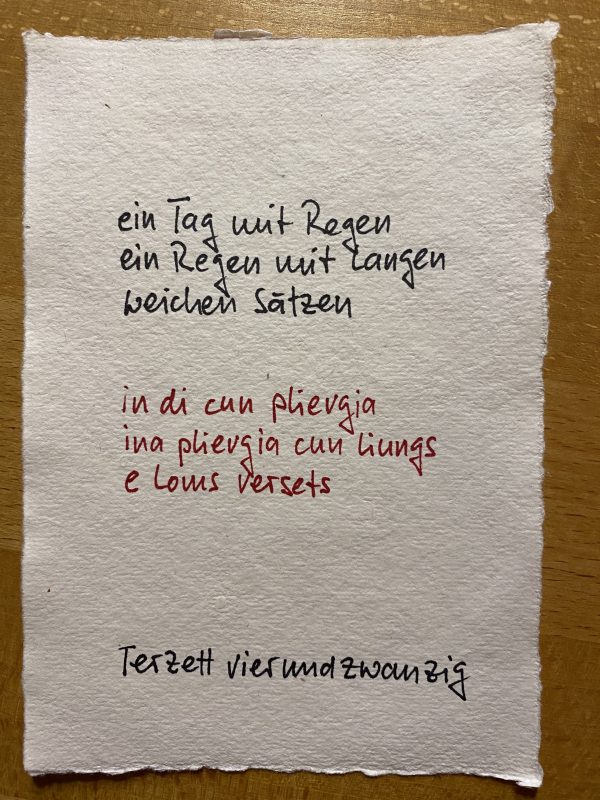 ein Tag mit Regen
ein Regen mit langen
weichen Sätzen
in di cun plievgia
ina plievgia cun liungs
e loms versets
Terzett vierundzwanzig